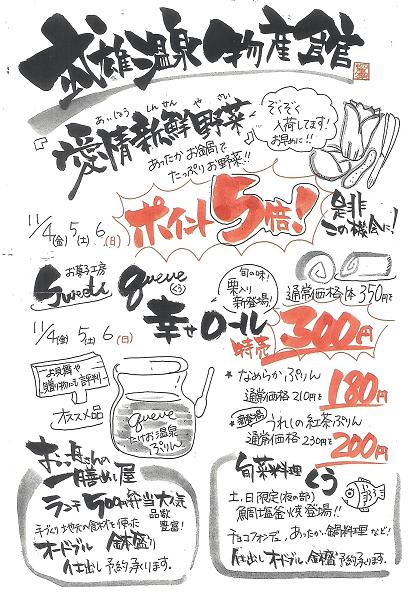 武雄温泉物産館
あいじょう しんせん やさい
『愛情新鮮野菜』
あったかお鍋で
たっぷりお野菜!!
ぞくぞく
入荷してます!
お早めに!!
11/4(金)5(土)6(日)
ポイント5倍!
是非
この機会に!
お菓子工房
Sweets queue
(くう)
11/4(金)5(土)6(日)
旬の味!
栗入り
新登場!
幸せロール
通常価格1本350円を
特売300円
お見舞や
贈り物にも評判
オススメ品
queue
たけお温泉
ぷりん
★なめらかぷりん
通常価格210円を180円
★新登場 うれしの紅茶ぷりん
通常価格230円を200円
おっ母さんの
一膳めし屋
ランチ500円弁当大人気
品数
豊富!
手づくり地元の食材を使った
オードブル 鉢盛り
仕出し予約承ります。
旬菜料理 くう
土,日限定(夜の部)
鯛塩釜焼登場!!
チョコフォンデュ、あったか鍋料理など!
仕出しオードブル、鉢盛予約承ります。